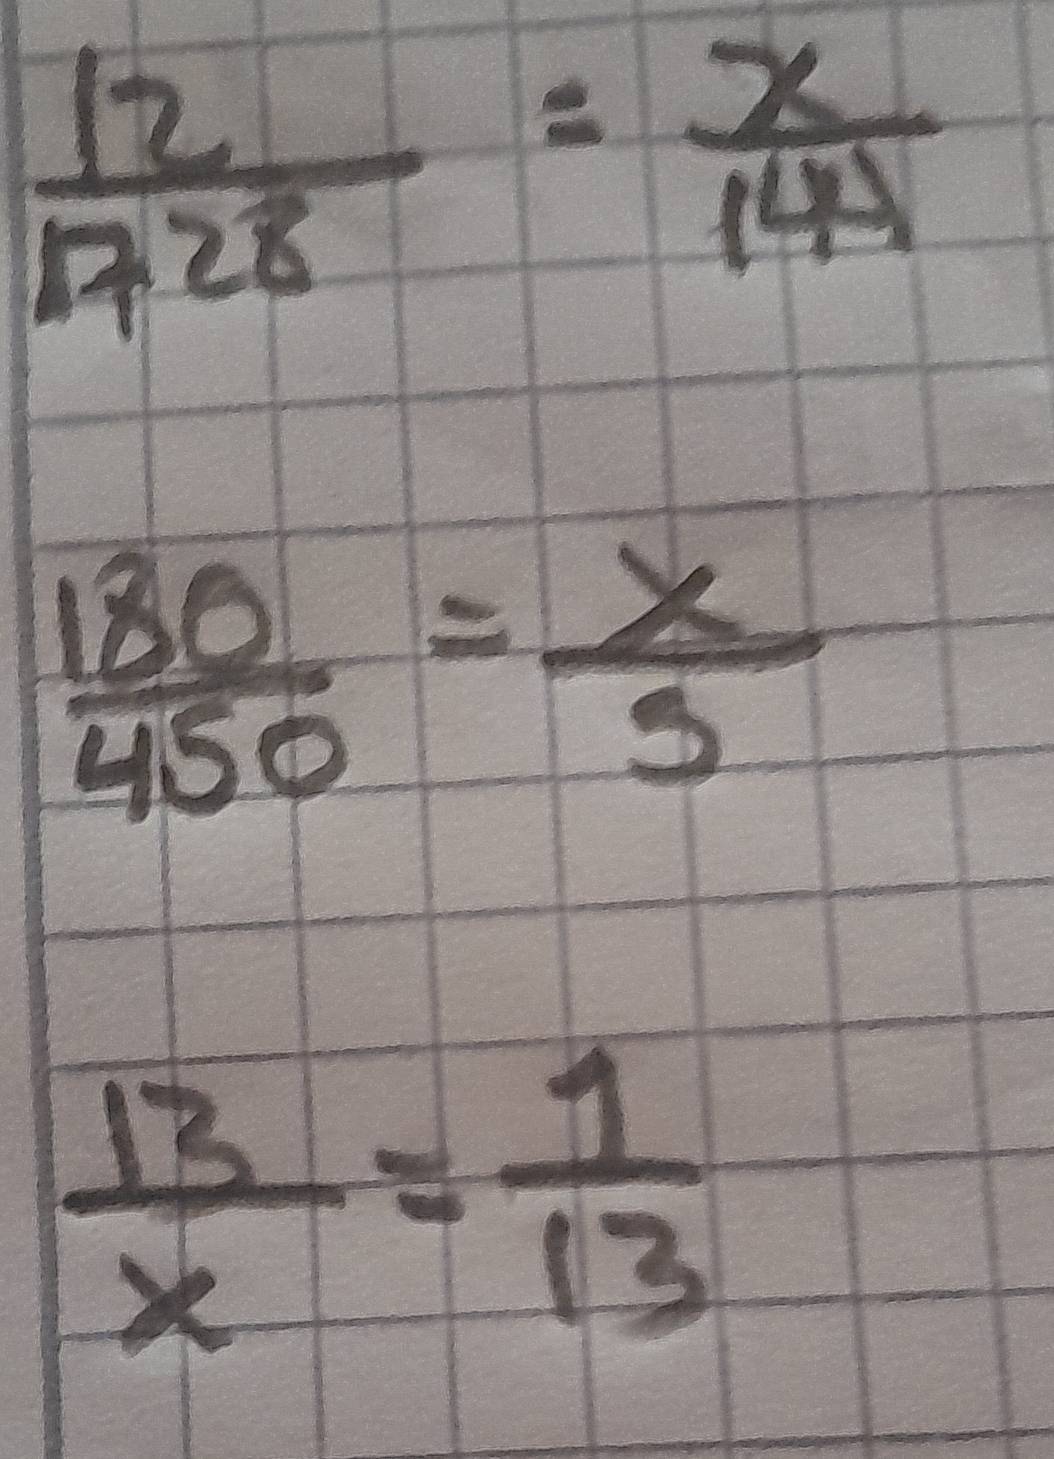 12/1728 = x/144
180/450 = x/5
13/x = 1/13